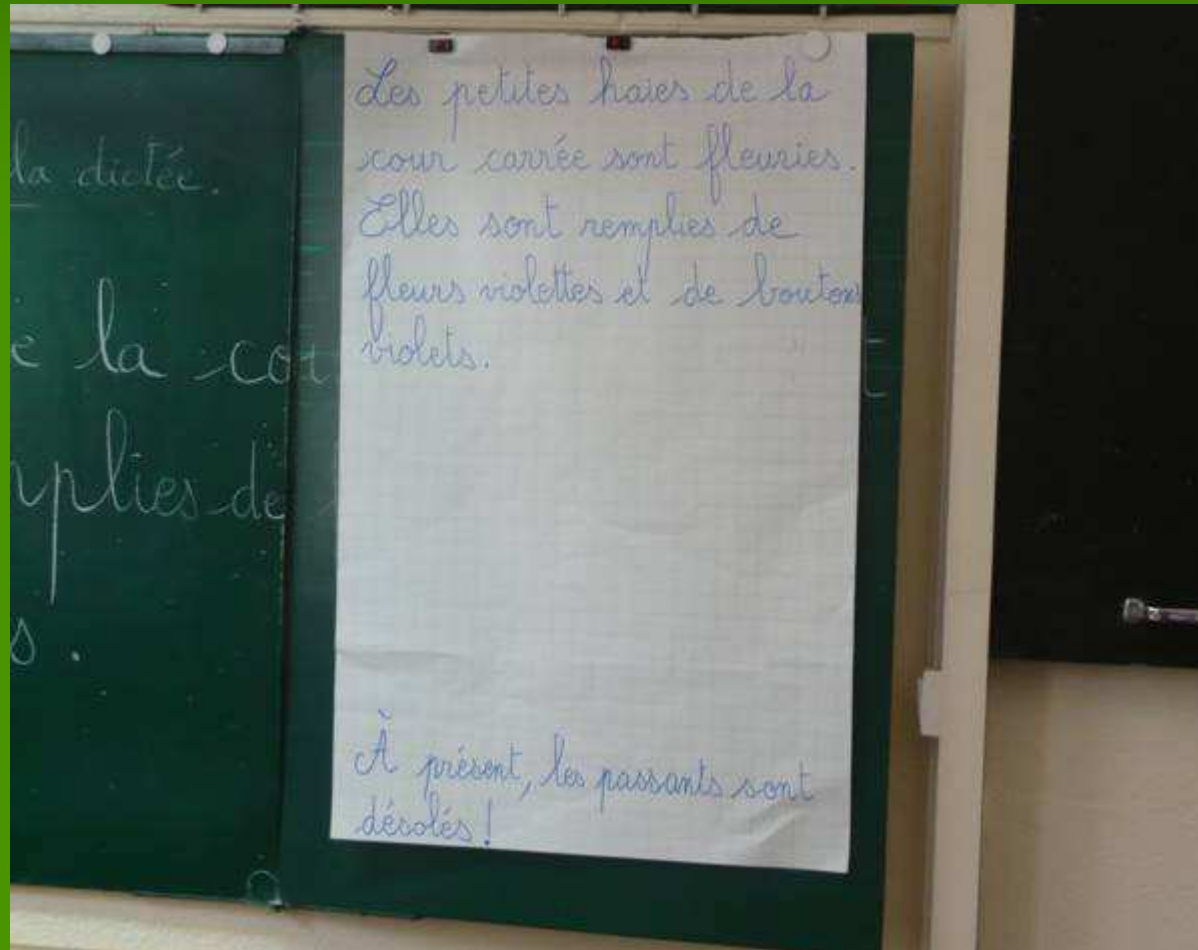 la dictée.
e la cou
mplies de
s.
Les petites haies de la
cour carrée sont fleuries.
Elles sont remplies de
fleurs violettes et de boutons
violets.
À présent, les passants sont
désolés !